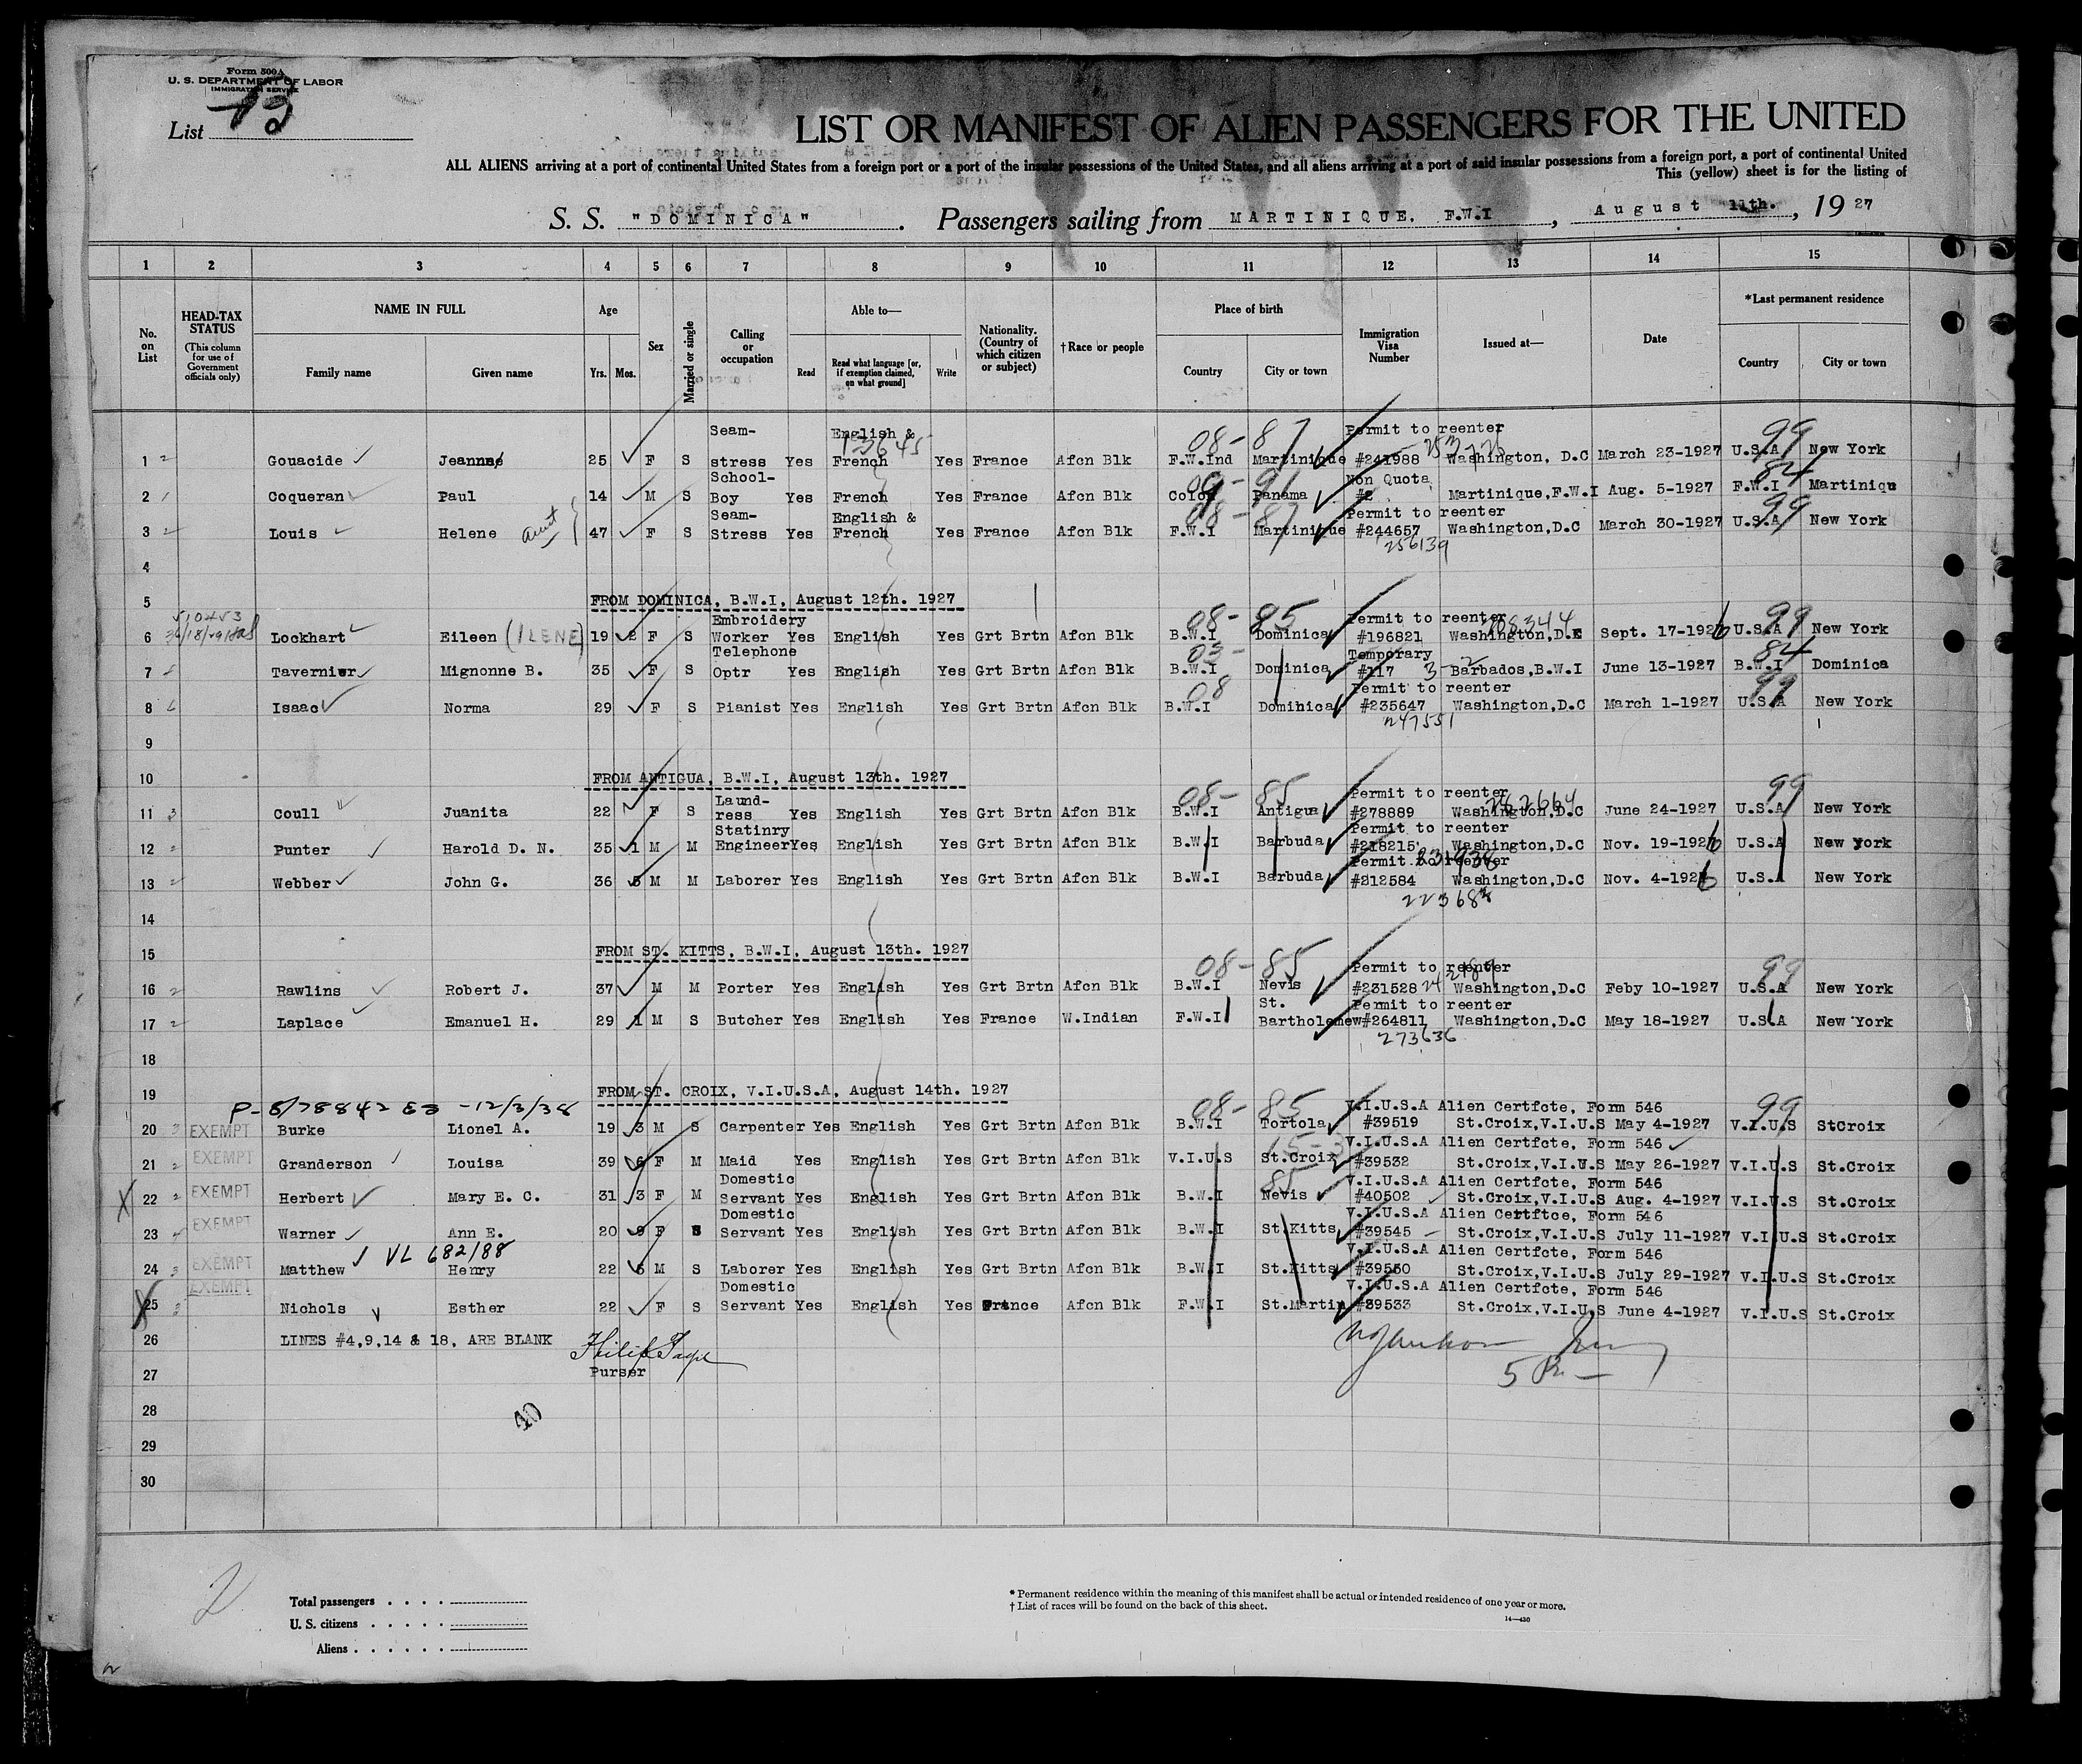 Form 500A
U. S. DEPARTMENT OF LABOR
IMMIGRATION SERVICE
List 13
LIST OR MANIFEST OF ALIEN PASSENGERS FOR THE UNITED
ALL ALIENS arriving at a port of continental United States from a foreign port or a port of the insular possessions of the United States, and all aliens arriving at a port of said insular possessions from a foreign port, a port of continental United
This (yellow) sheet is for the listing of
S. S. "DOMINICA". Passengers sailing from MARTINIQUE, F.W.I, August 11th., 1927
1 2 3 4 5 6 7 8 9 10 11 12 13 14 15
No. on List HEAD-TAX STATUS (This column for use of Government officials only) NAME IN FULL Family name Given name Age Yrs. Mos. Sex Married or single Calling or occupation Able to— Read Read what language [or, if exemption claimed, on what ground] Write Nationality. (Country of which citizen or subject) †Race or people Place of birth Country City or town Immigration Visa Number Issued at— Date *Last permanent residence Country City or town
Seam- English & 08-87 Permit to reenter 99
1 Gouacide Jeanne 25 F S stress Yes French Yes France Afcn Blk F.W.Ind Martinique #241988 Washington, D.C March 23-1927 U.S.A New York
School- Non Quota 84
2 Coqueran Paul 14 M S Boy Yes French Yes France Afcn Blk Colon Panama #2 Martinique,F.W.I Aug. 5-1927 F.W.I Martiniqu
Seam- English & 08-87 Permit to reenter 99
3 Louis Helene aunt 47 F S Stress Yes French Yes France Afcn Blk F.W.I Martinique #244657 Washington,D.C March 30-1927 U.S.A New York
256139
4
5 FROM DOMINICA, B.W.I, August 12th. 1927
Embroidery 08-85 Permit to reenter 208344 99
6 Lockhart Eileen (ILENE) 19 2 F S Worker Yes English Yes Grt Brtn Afcn Blk B.W.I Dominica #196821 Washington,D.C Sept. 17-1926 U.S.A New York
Telephone 03- Temporary 84
7 Tavernier Mignonne B. 35 F S Optr Yes English Yes Grt Brtn Afcn Blk B.W.I Dominica #117 Barbados,B.W.I June 13-1927 B.W.I Dominica
08 Permit to reenter 99
8 Isaac Norma 29 F S Pianist Yes English Yes Grt Brtn Afcn Blk B.W.I Dominica #235647 Washington,D.C March 1-1927 U.S.A New York
247551
9
10 FROM ANTIGUA, B.W.I, August 13th. 1927
Laund- 08-85 Permit to reenter 99
11 Coull Juanita 22 F S ress Yes English Yes Grt Brtn Afcn Blk B.W.I Antigua #278889 Washington,D.C June 24-1927 U.S.A New York
Statinry Permit to reenter
12 Punter Harold D. N. 35 1 M M Engineer Yes English Yes Grt Brtn Afcn Blk B.W.I Barbuda #218215 Washington,D.C Nov. 19-1926 U.S.A New York
Permit to reenter
13 Webber John G. 36 5 M M Laborer Yes English Yes Grt Brtn Afcn Blk B.W.I Barbuda #212584 Washington,D.C Nov. 4-1926 U.S.A New York
14
15 FROM ST. KITTS, B.W.I, August 13th. 1927
08-85 Permit to reenter 99
16 Rawlins Robert J. 37 M M Porter Yes English Yes Grt Brtn Afcn Blk B.W.I Nevis #231528 Washington,D.C Feby 10-1927 U.S.A New York
St. Permit to reenter
17 Laplace Emanuel H. 29 1 M S Butcher Yes English Yes France W.Indian F.W.I Bartholomew #264811 Washington,D.C May 18-1927 U.S.A New York
273636
18
19 FROM ST. CROIX, V.I.U.S.A, August 14th. 1927
08-85 V.I.U.S.A Alien Certfcte, Form 546 99
20 EXEMPT Burke Lionel A. 19 3 M S Carpenter Yes English Yes Grt Brtn Afcn Blk B.W.I Tortola #39519 St.Croix,V.I.U.S May 4-1927 V.I.U.S StCroix
V.I.U.S.A Alien Certfcte, Form 546
21 EXEMPT Granderson Louisa 39 6 F M Maid Yes English Yes Grt Brtn Afcn Blk V.I.U.S St.Croix #39532 St.Croix,V.I.U.S May 26-1927 V.I.U.S St.Croix
Domestic 85 V.I.U.S.A Alien Certfcte, Form 546
22 EXEMPT Herbert Mary E. C. 31 3 F M Servant Yes English Yes Grt Brtn Afcn Blk B.W.I Nevis #40502 St.Croix,V.I.U.S Aug. 4-1927 V.I.U.S St.Croix
Domestic V.I.U.S.A Alien Certftce, Form 546
23 EXEMPT Warner Ann E. 20 9 F S Servant Yes English Yes Grt Brtn Afcn Blk B.W.I St.Kitts #39545 St.Croix,V.I.U.S July 11-1927 V.I.U.S St.Croix
VL 682188 V.I.U.S.A Alien Certfcte, Form 546
24 EXEMPT Matthew Henry 22 M S Laborer Yes English Yes Grt Brtn Afcn Blk B.W.I St.Kitts #39550 St.Croix,V.I.U.S July 29-1927 V.I.U.S St.Croix
Domestic V.I.U.S.A Alien Certfcte, Form 546
25 EXEMPT Nichols Esther 22 F S Servant Yes English Yes France Afcn Blk F.W.I St.Martin #39533 St.Croix,V.I.U.S June 4-1927 V.I.U.S St.Croix
26 LINES #4,9,14 & 18, ARE BLANK
27 Purser
28
29
30
Total passengers
U. S. citizens
Aliens
* Permanent residence within the meaning of this manifest shall be actual or intended residence of one year or more.
† List of races will be found on the back of this sheet.
14—430
2